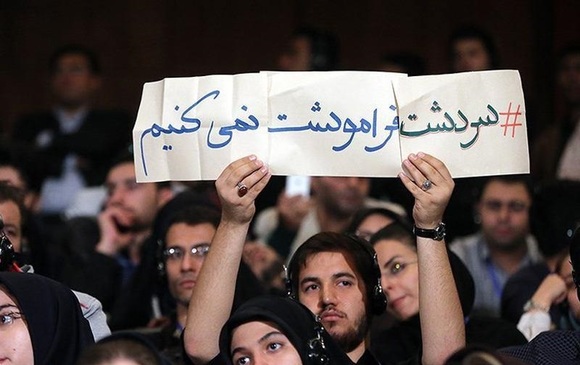 #سردشت فراموشت نمی کنیم